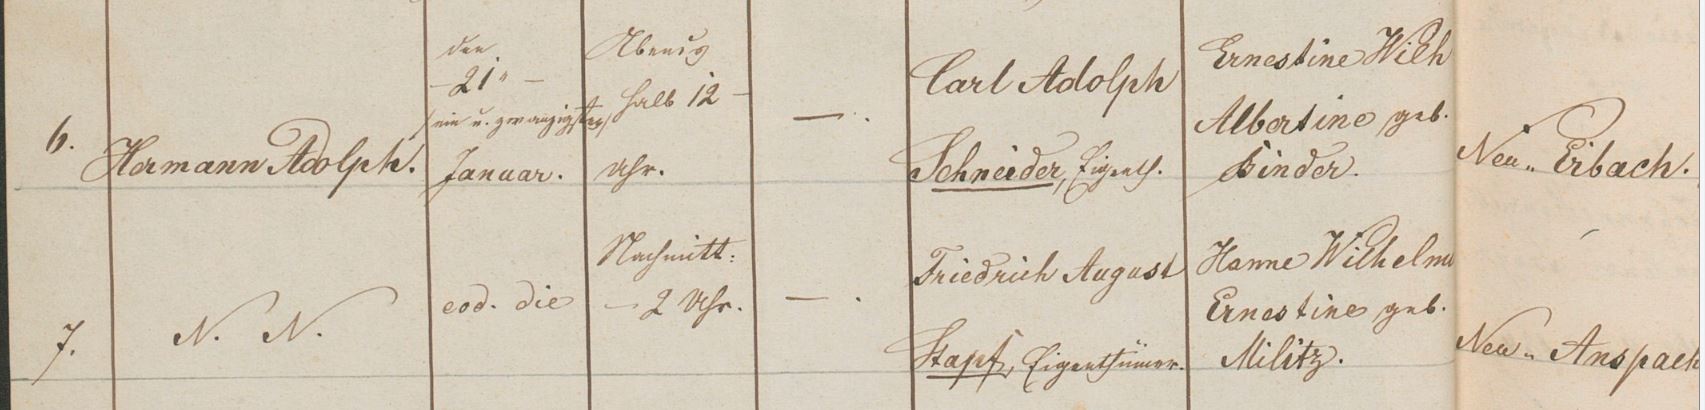 6.
Hermann Adolph.
den
- 21" -
/ein u. zwanzigsten/
Januar.
Abends
halb 12 -
Uhr.
- .
Carl Adolph
Schneider, Eigenth.
Ernestine Wilh
Albertine geb.
Binder.
Neu-Eibach.
7.
N. N.
eod. die
Nachmitt:
- 2 Uhr.
- .
Friedrich August
Stapf, Eigenthümer.
Hanne Wilhelm
Ernestine geb.
Militz.
Neu-Anspach